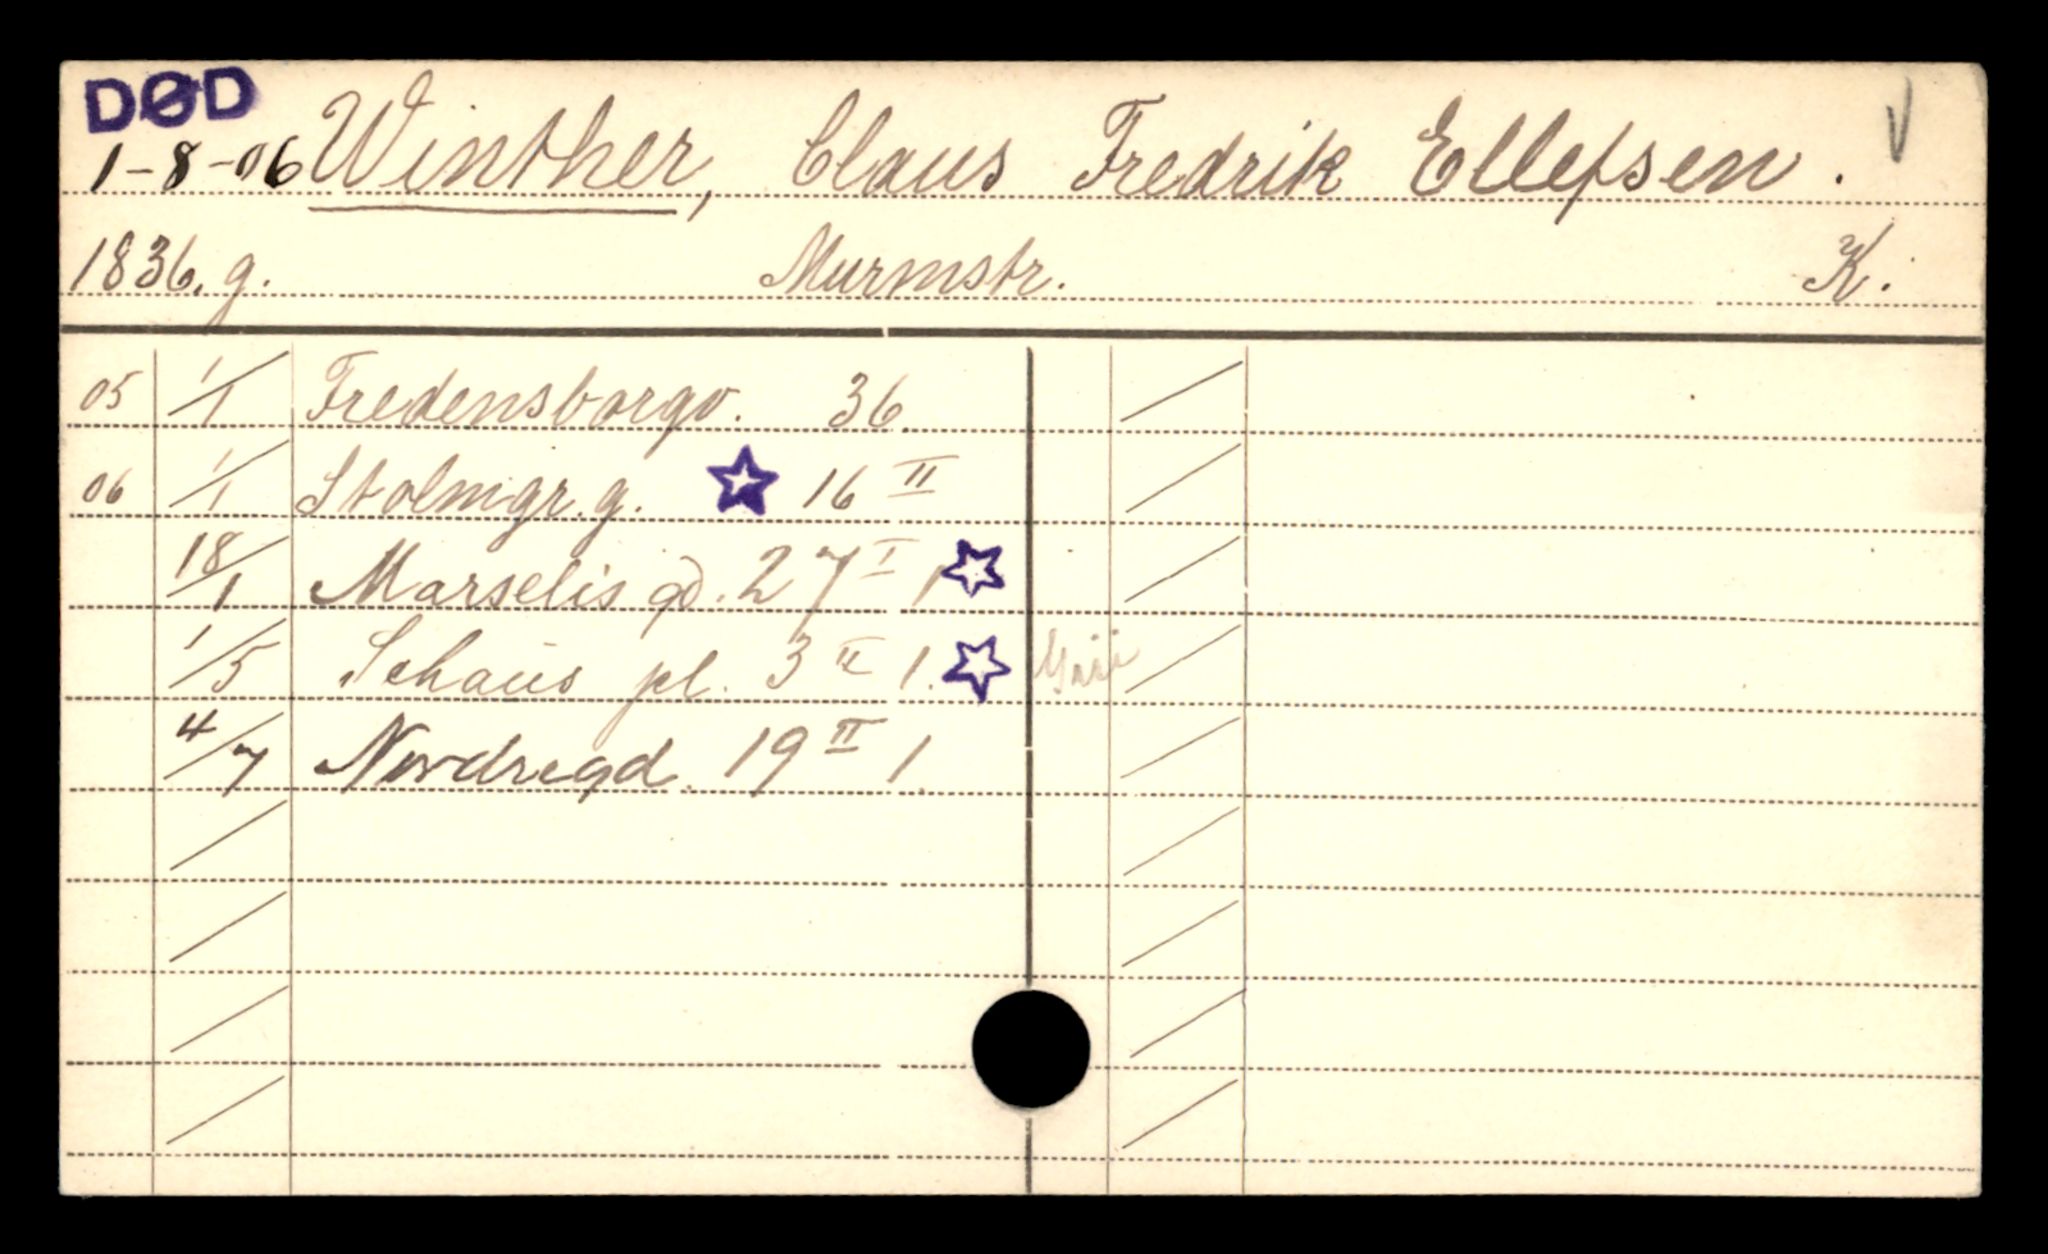 DØD
1-8-06 Winther, Claus Fredrik Ellefsen. V
1836. g. Murmstr. K.
05 1/1 Fredensborgv. 36
06 1/1 Stolmgr. g. 16 II
18/1 Marselis gd. 27 I 1
1/5 Schaüs pl. 3 II 1.
4/7 Nordregd. 19 II 1.